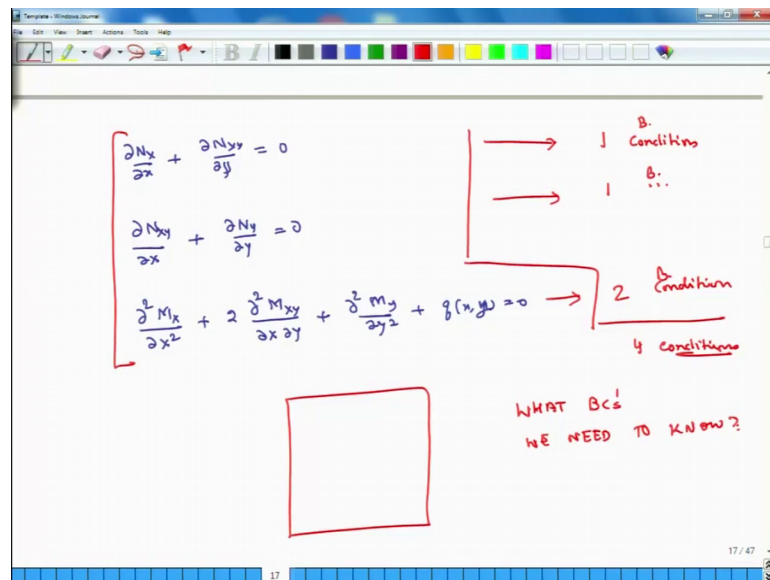 Template - Windows Journal
File Edit View Insert Actions Tools Help
∂Nx/∂x + ∂Nxy/∂y = 0
→ 1 B. Conditions
→ 1 B. ...
∂Nxy/∂x + ∂Ny/∂y = 0
∂²Mx/∂x² + 2 ∂²Mxy/∂x∂y + ∂²My/∂y² + q(x,y) = 0 → 2 B. Condition
4 conditions
WHAT BCs'
WE NEED TO KNOW?
17 / 47
17